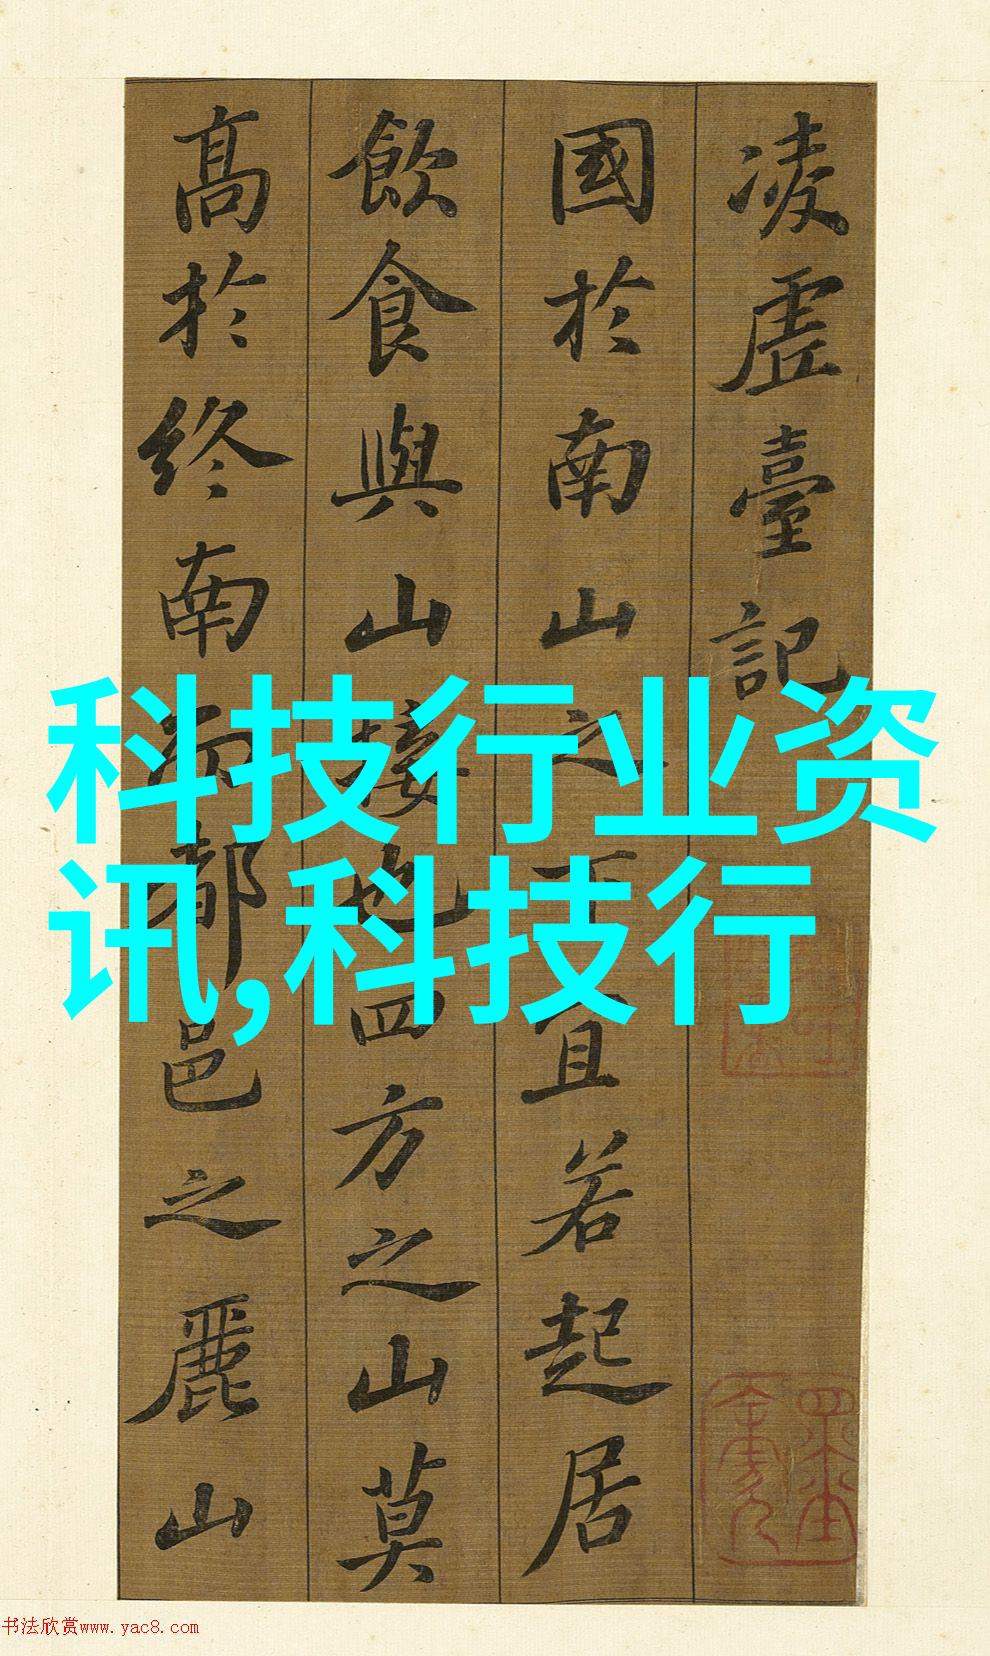 凌虛臺記
國於南山之下宜若起居
飲食與山接也四方之山莫
高於終南而都邑之麗山
科技行业资
讯,科技行
书法欣赏www.yac8.com